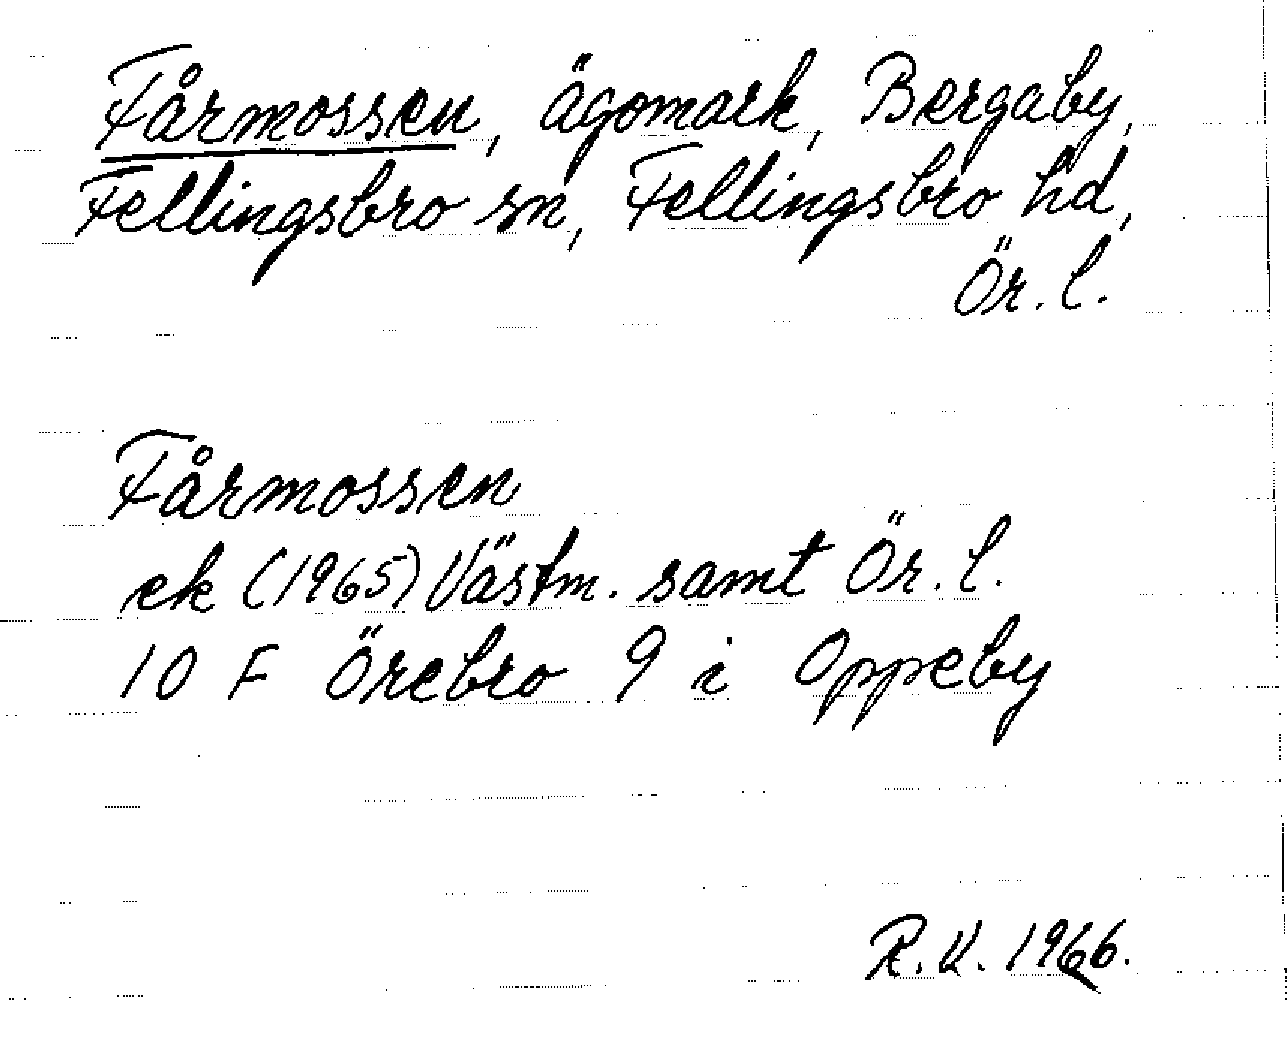 Fårmossen, ägomark, Bergaby,
Fellingsbro sn, Fellingsbro hd,
Ör. l.
Fårmossen
ek (1965) Västm. samt Ör. l.
10 F Örebro 9 i Oppeby
R.K. 1966.